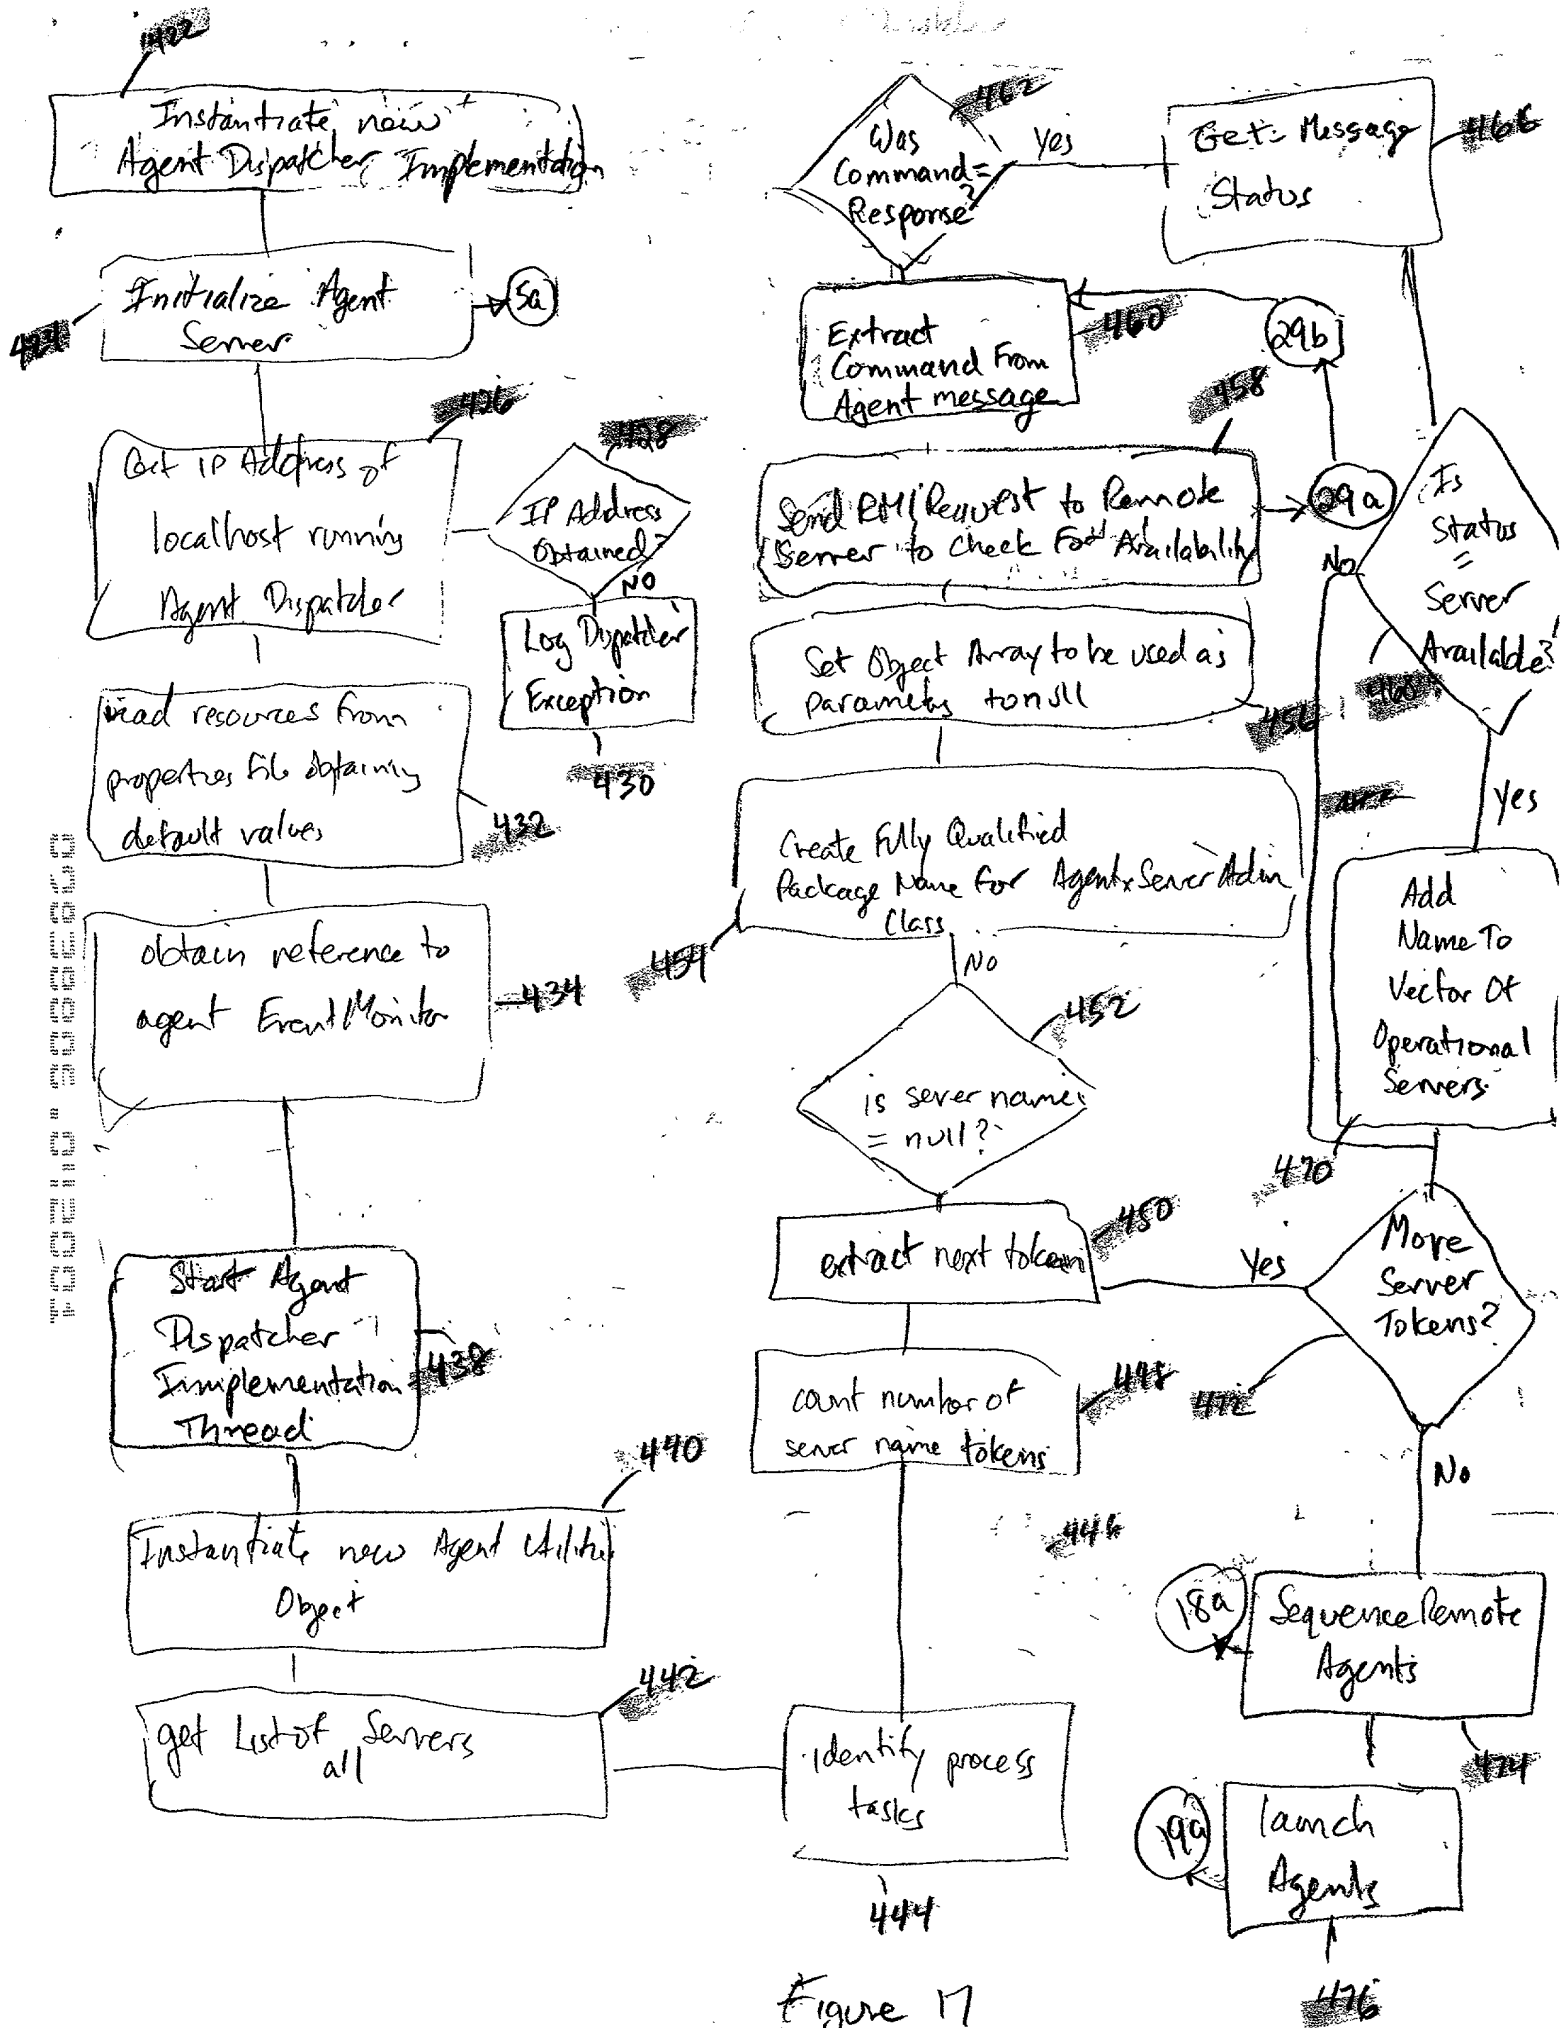 422
Instantiate new
Agent Dispatcher Implementation
Initialize Agent
Server
5a
424
426
Get IP Address of
localhost running
Agent Dispatcher
428
IP Address
Obtained?
NO
Log Dispatcher
Exception
430
read resources from
properties file obtaining
default values
432
obtain reference to
agent Event Monitor
434
Start Agent
Dispatcher
Implementation
Thread
438
440
Instantiate new Agent Utilities
Object
442
get List of Servers
all
identify process
tasks
444
446
count number of
server name tokens
448
extract next token
450
is server name
= null?
452
No
Create Fully Qualified
Package Name For AgentxServerAdmin
Class
454
Set Object Array to be used as
parameters to null
456
Send RMI Request to Remote
Server to Check For Availability
458
29a
29b
Extract
Command From
Agent message
460
Was
Command =
Response?
462
Yes
Get Message
Status
466
Is
Status
=
Server
Available?
468
No
Yes
Add
Name To
Vector Of
Operational
Servers
470
More
Server
Tokens?
472
Yes
No
Sequence Remote
Agents
18a
474
launch
Agents
19a
476
Figure 17